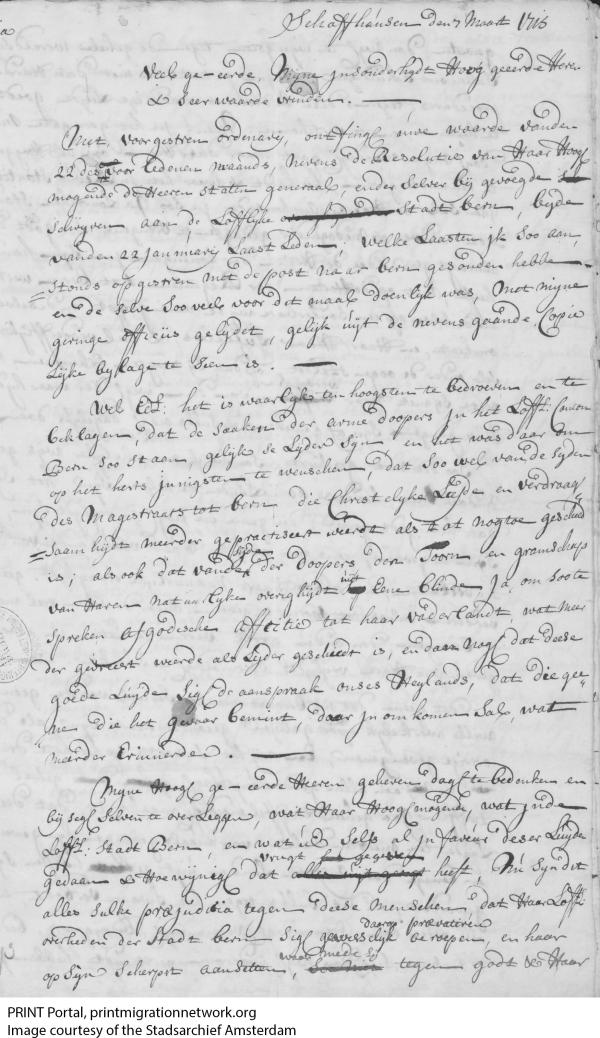 Schaffhausen den 7 Maart 1713
Veel ge-eerde, Myne jnsonderhydt Hoog geeerde Heren
& seer waarde vrinden.
Met voorgistren ordenarij, ontfing uwe waarde vanden
22 des voor ledenen maands, nevens de Resolutie van Haar Hoog
mogende de Heeren staten generaal, ender selver bij gevoegde
schryven aan de Lofflyke Stadt bern, byde
vanden 22 Januuarij Laast Leden; welke Laasten jk soo aan
stonds op gistren met de post naar bern gesonden hebbe
en de selve soo veel voor dit maal doenlijk was, Met mijne
geringe officiis gelydet, gelijk uijt de nevens gaande Copie
Lijke bylage te sien is.
Wel Ed.: het is waarlijk ten hoogsten te bedroeven en te
beklagen, dat de saaken der arme doopers jn het Loffl: Canton
Bern soo staan, gelijk se Lyder syn en het was daar om
op het herts jnnigsten te wenschen, dat soo wel van de syden
des Magistraats tot bern die Christelyke Liefde en verdraag
saamhijdt meerder gepractiseert wierdt als tot nogtoe geschied
is; als ook dat vande syde der doopers den Toorn en gramschap
van Haren natuurlyke overighijdt nijt Eene blinde, Ja, om soo te
spreken afgodische affectie tot haar vaderlandt, wat meer
der gevreest wierde als Lyder geschiedt is, en dan nog dat deese
goede Luyde sig de aanspraak onses Heylands, dat die gee
ne die het gevaar bemint, daar jn omkomen sal, wat
meerder Erinnerden.
Myne Hoog ge-eerde Heeren gelieven dog te bedenken en
bij seg selven te over Leggen, wat Haar Hoog mogende, wat jnde
Loffl: stadt Bern, en wat ick selfs al jn faveur deser Luyde
gedaan & Hoe wynig vrugt dat heeft, Nu syn dit
alles sulke præjudicia tegen deese menschen, dat Haar Loffl:
overheden der Stadt bern sig daarop beroepen, en haar
op syn scherpst aansetten, waar mede sy tegen godt & Haar
PRINT Portal, printmigrationnetwork.org
Image courtesy of the Stadsarchief Amsterdam